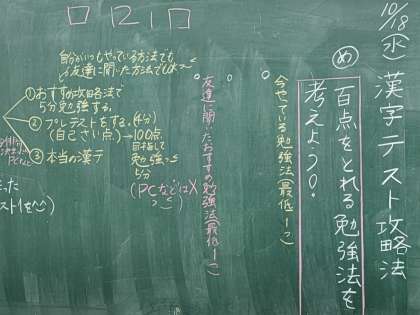 10/18(水) 漢字テスト攻略法
め 百点をとれる勉強法を
考えよう。
今やっている勉強法(最低1つ)
友達に聞いたおすすめ勉強法(最低1つ)
自分がいつもやっている方法でも
友達に聞いた方法でもOK
①おすすめ攻略法で
5分勉強する。
②プレテストをする。(4分)
(自己さい点)→100点
目指して
勉強
5分
(PCなどはX
③本当の漢テ